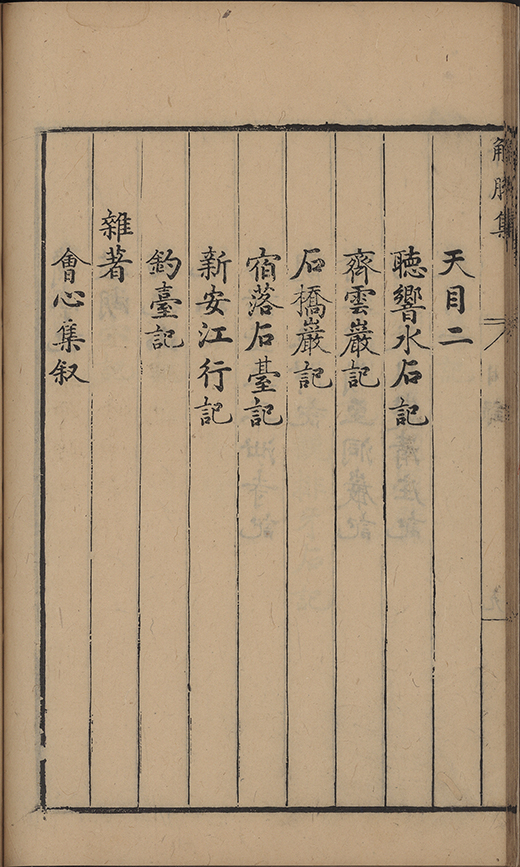 解脫集
天目二
聽響水石記
齊雲巖記
石橋巖記
宿落石臺記
新安江行記
釣臺記
雜著
會心集叙